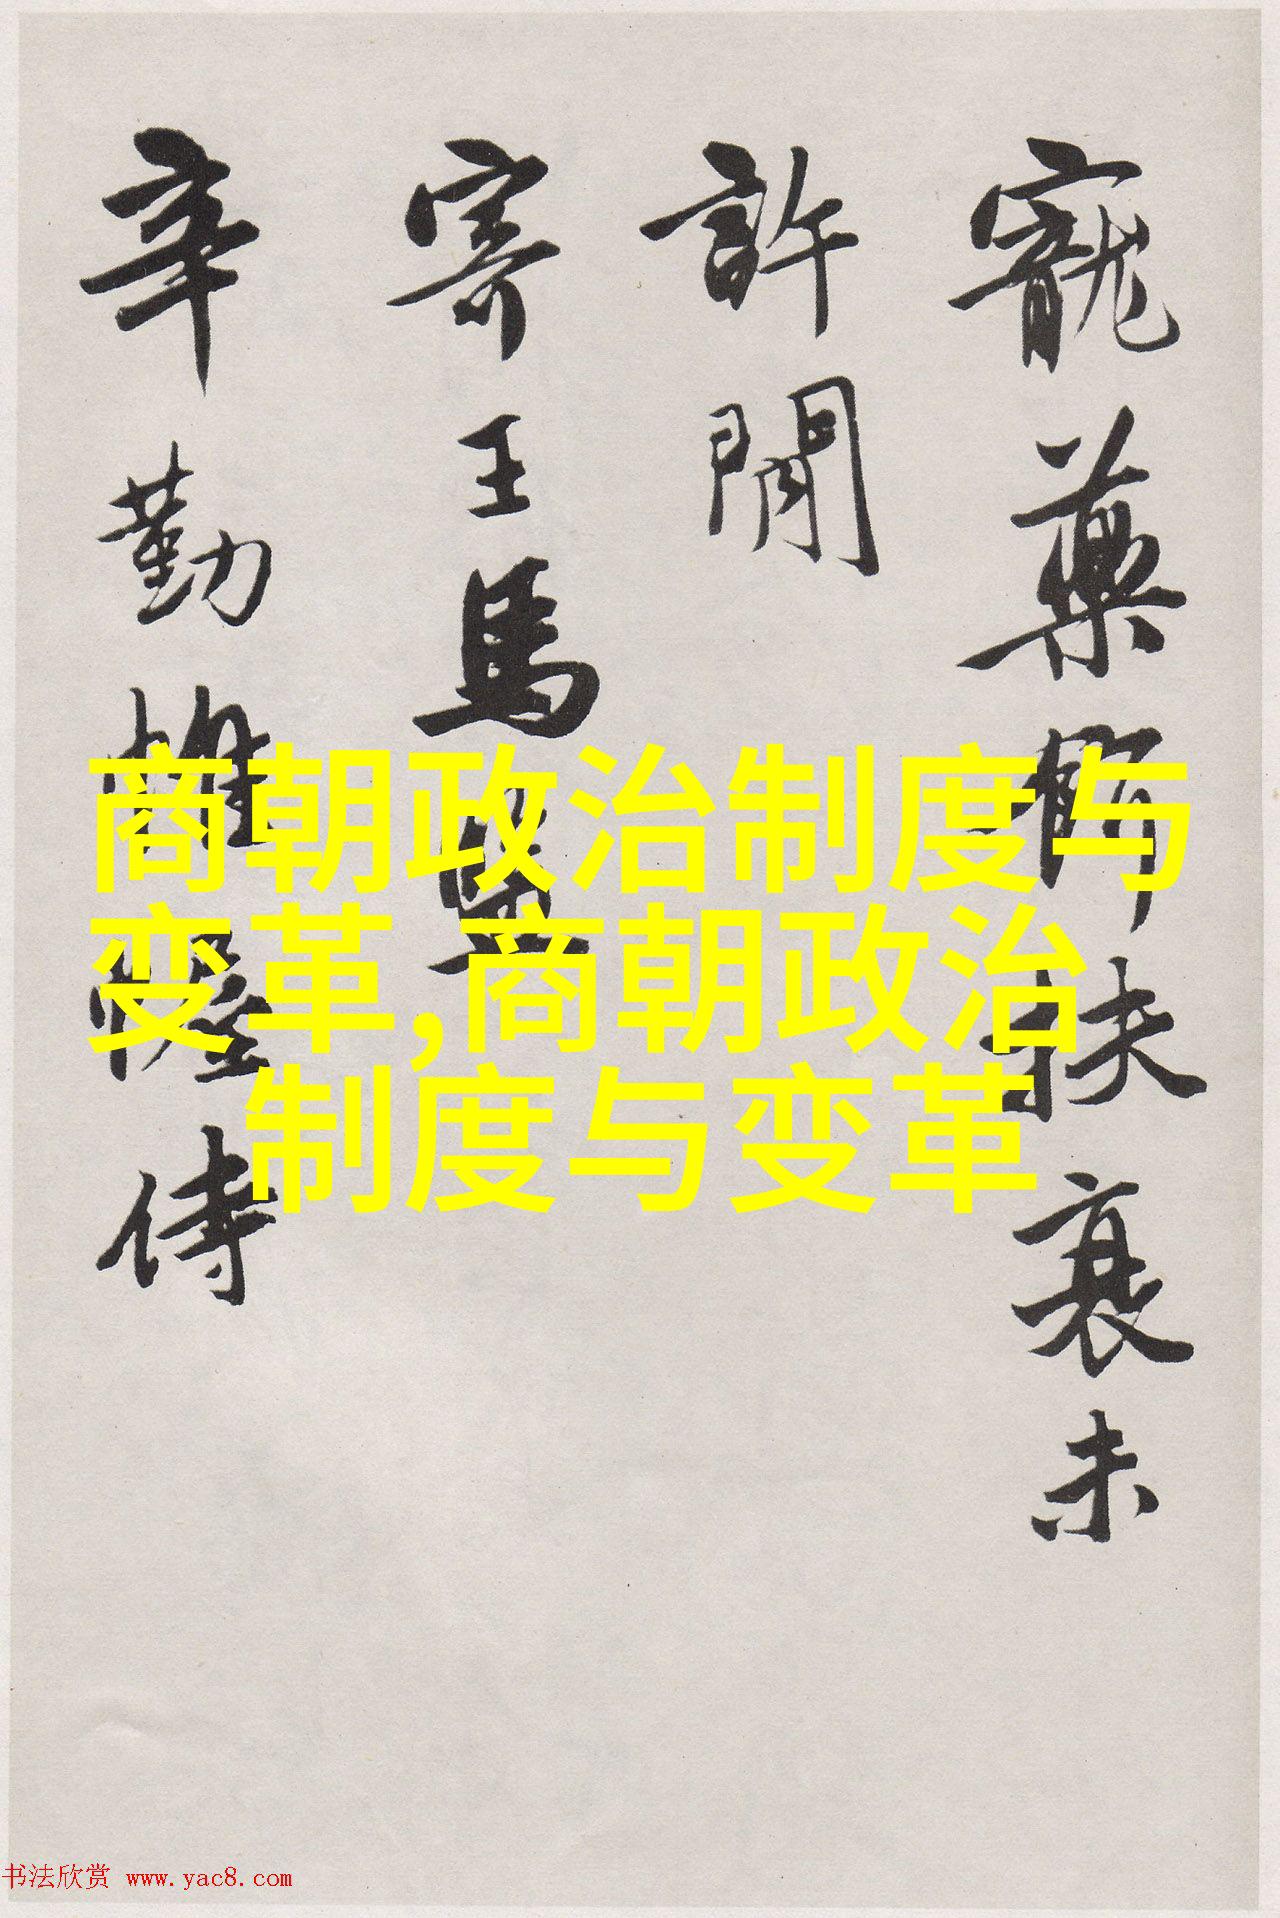 寵藥餌扶衰未
許閒
寄王馬醫
辛勤惟幄侍
商朝政治制度与
变革,商朝政治
制度与变革
书法欣赏 www.yac8.com